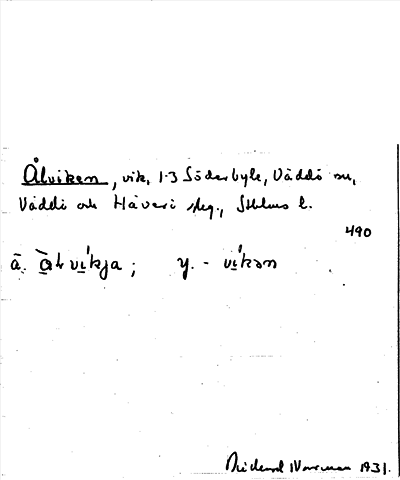 Ålviken, vik, 1-3 Söderbyle, Väddö sn,
Väddö och Häverö skg., Sthlms l.
490
ā. å̀lvíkja; y. - víkən
Rickard Norrman 1931.